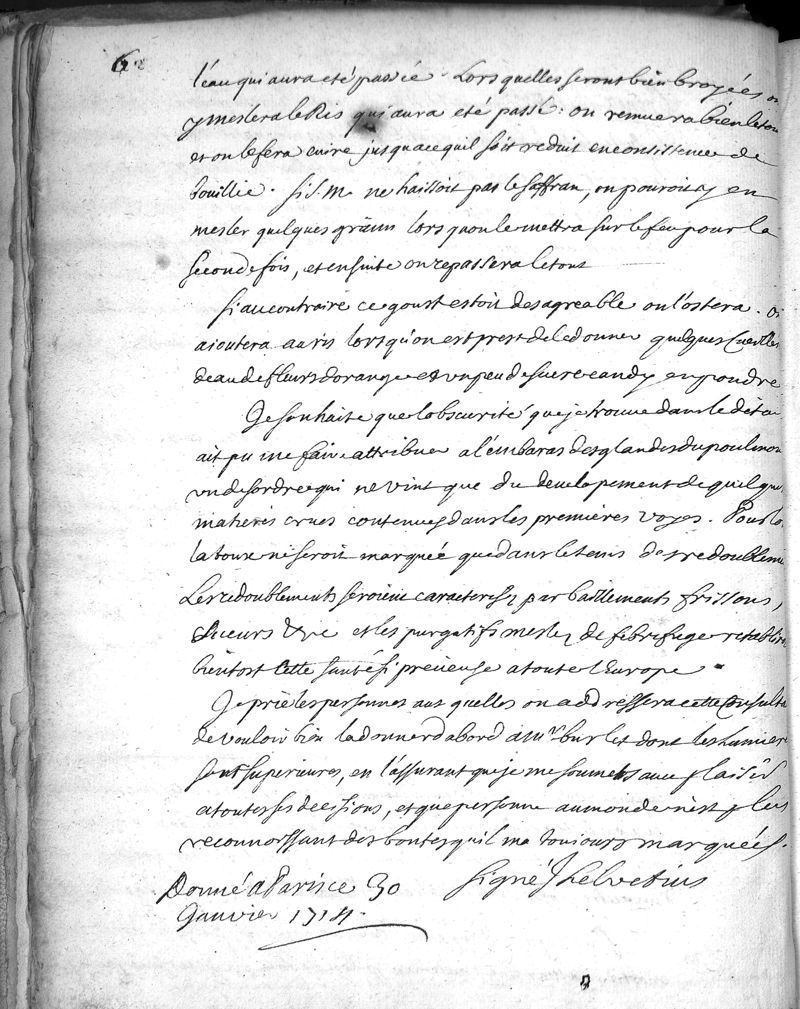 6
l'eau qui aura eté passée. Lors quelles seront bien broyées on
y meslera le Ris qui aura eté passé: on remuera bien le tou
et on le fera cuire jusquacequil soit reduit en consistence de
bouillie. si S.M. ne haissoit pas le saffran, on pouroit y en
mesler quelques grains lorsquon le mettra sur le feu pour la
seconde fois, et ensuite on repassera le tout
si au contraire ce goust estoit desagreable on l'ostera. on
aioutera au ris lorsqu'on est prest de le donner quelques Cueilles
deau de fleurs d'orange et un peu de sucre candy en poudre
Je souhaite que l'obscurité que je trouve dans le détai
ait pu me faire attribuer a l'embaras des glandes du poulmon
un desordre qui ne vint que du developement de quelque
matieres crues contenues dans les premières voyes. Pour lo
la toux ne seroit marquée que dans le tems des redoublemen
Les redoublements seroient caracterisez par baillements frissons,
sueurs &ce et les purgatifs meslez de febrifuge retablir
bientost cette santé si precieuse a toute l'Europe
Je prie les personnes aux quelles on addressera cette Consulta
de vouloir bien la donner d'abord a Mr. burlet dont les lumier
sont superieures, en l'assurant que je me soumets avec plaisir
a toutes ses decisions, et que personne au monde n'est plus
reconnoissant des bontes qu'il ma toujours marquées.
Donné a Paris ce 30 signé Helvetius
Janvier 1714.